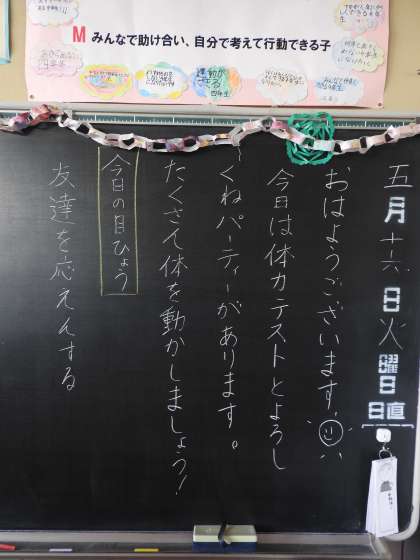 M みんなで助け合い、自分で考えて行動できる子
五月十六日火曜日
日直
おはようございます。
今日は体力テストとよろし
くねパーティーがあります。
たくさん体を動かしましょう!
今日の目ひょう
友達を応えんする